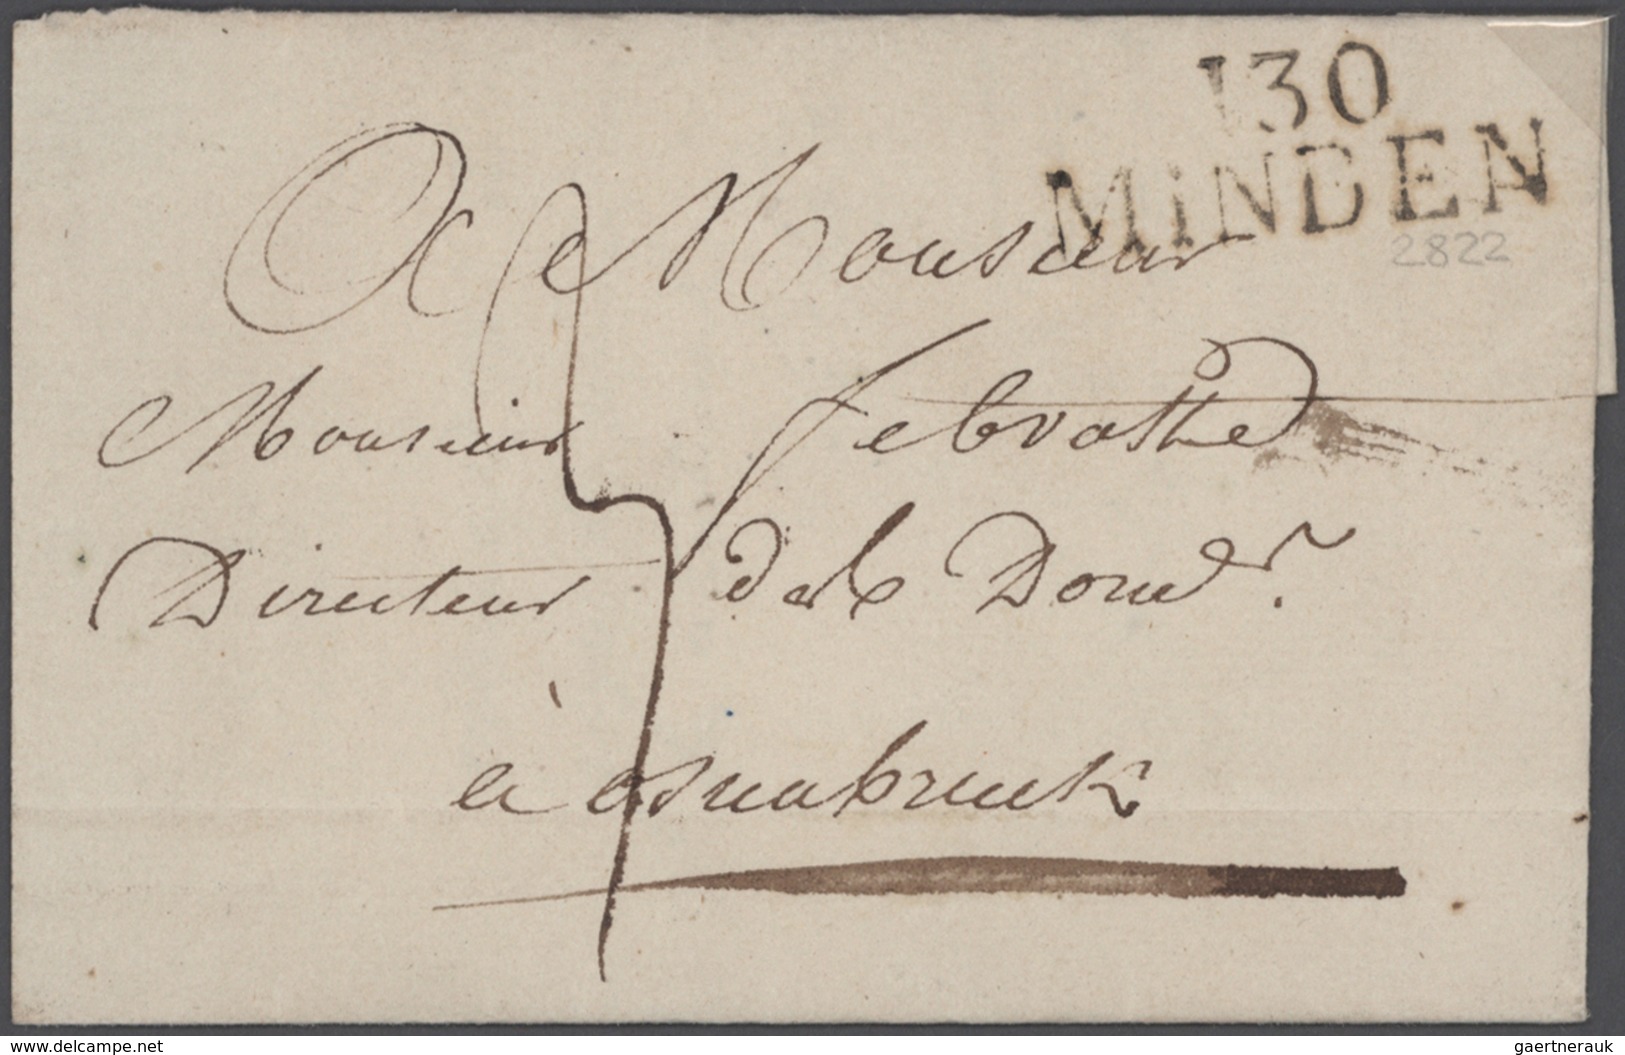 130
MiNDEN
2822
A Monsieur
Monsieur
Directeur de la
à osnabruck
www.delcampe.net
gaertnerauk